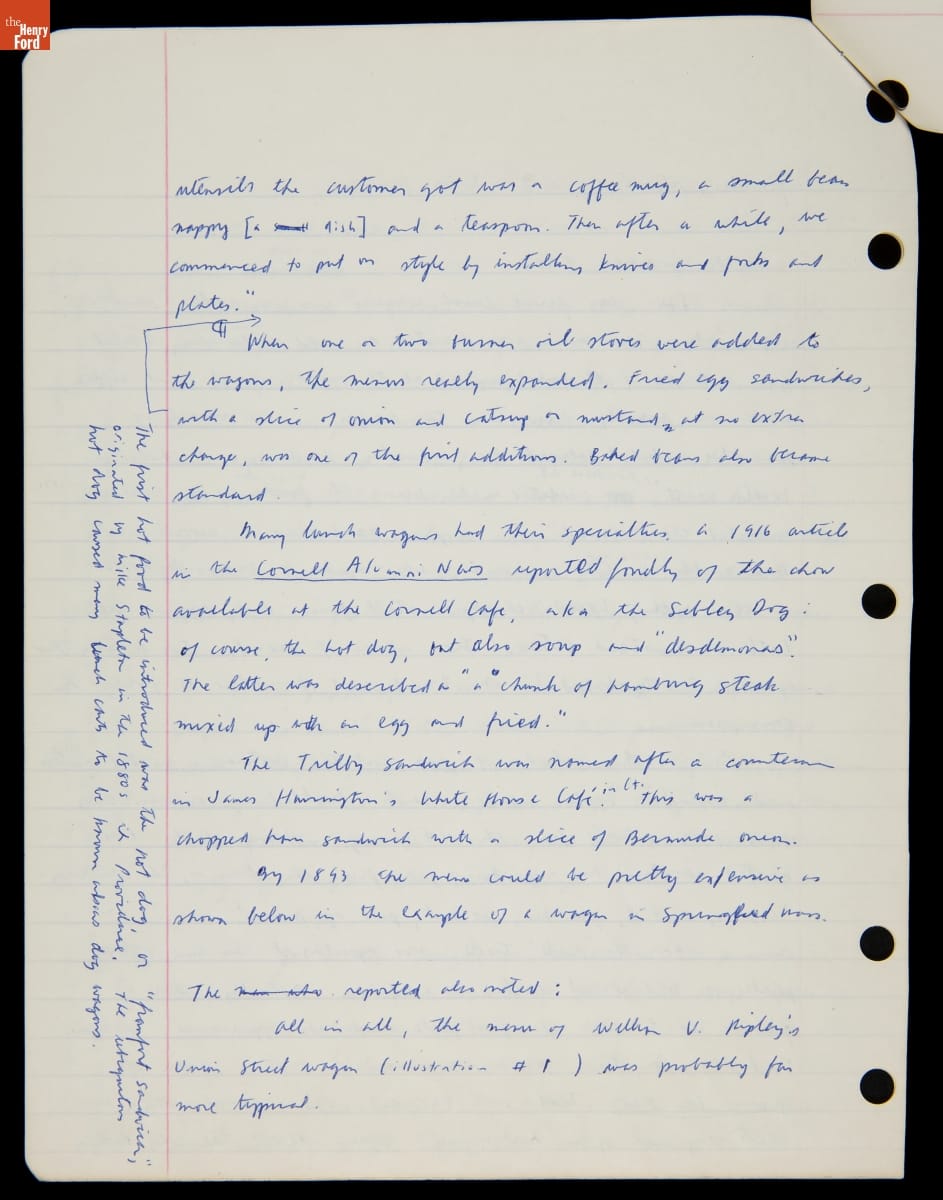 the
Henry
Ford
utensils the customer got was a coffee mug, a small bean
nappy [a small dish] and a teaspoon. Then after a while, we
commenced to put on style by installing knives and forks and
plates."
¶ When one or two burner oil stoves were added to
the wagons, the menus really expanded. Fried egg sandwiches,
with a slice of onion and catsup or mustard, at no extra
charge, was one of the first additions. Baked beans also became
standard.
Many lunch wagons had their specialties. A 1916 article
in the Cornell Alumni News reported fondly of the chow
available at the Cornell Cafe, aka the Sibley Dog:
of course, the hot dog, but also soup and "desdemonas".
The latter was described a "a "chunk of hamburg steak
mixed up with an egg and fried."
The Trilby sandwich was named after a counterman
in James Harrington's White House Café. in Ct. This was a
chopped ham sandwich with a slice of Bermuda onion.
By 1893 the menu could be pretty expensive as
shown below in the example of a wagon in Springfield Mass.
The man who reported also noted:
All in all, the menu of William V. Ripley's
Union Street wagon (illustration #1 ) was probably far
more typical.
The first hot food to be introduced was the hot dog, or "frankfort sandwich,"
originated by Mike Stapleton in the 1880s in Providence. The ubiquitous
hot dog caused many lunch carts to be known as dog wagons.